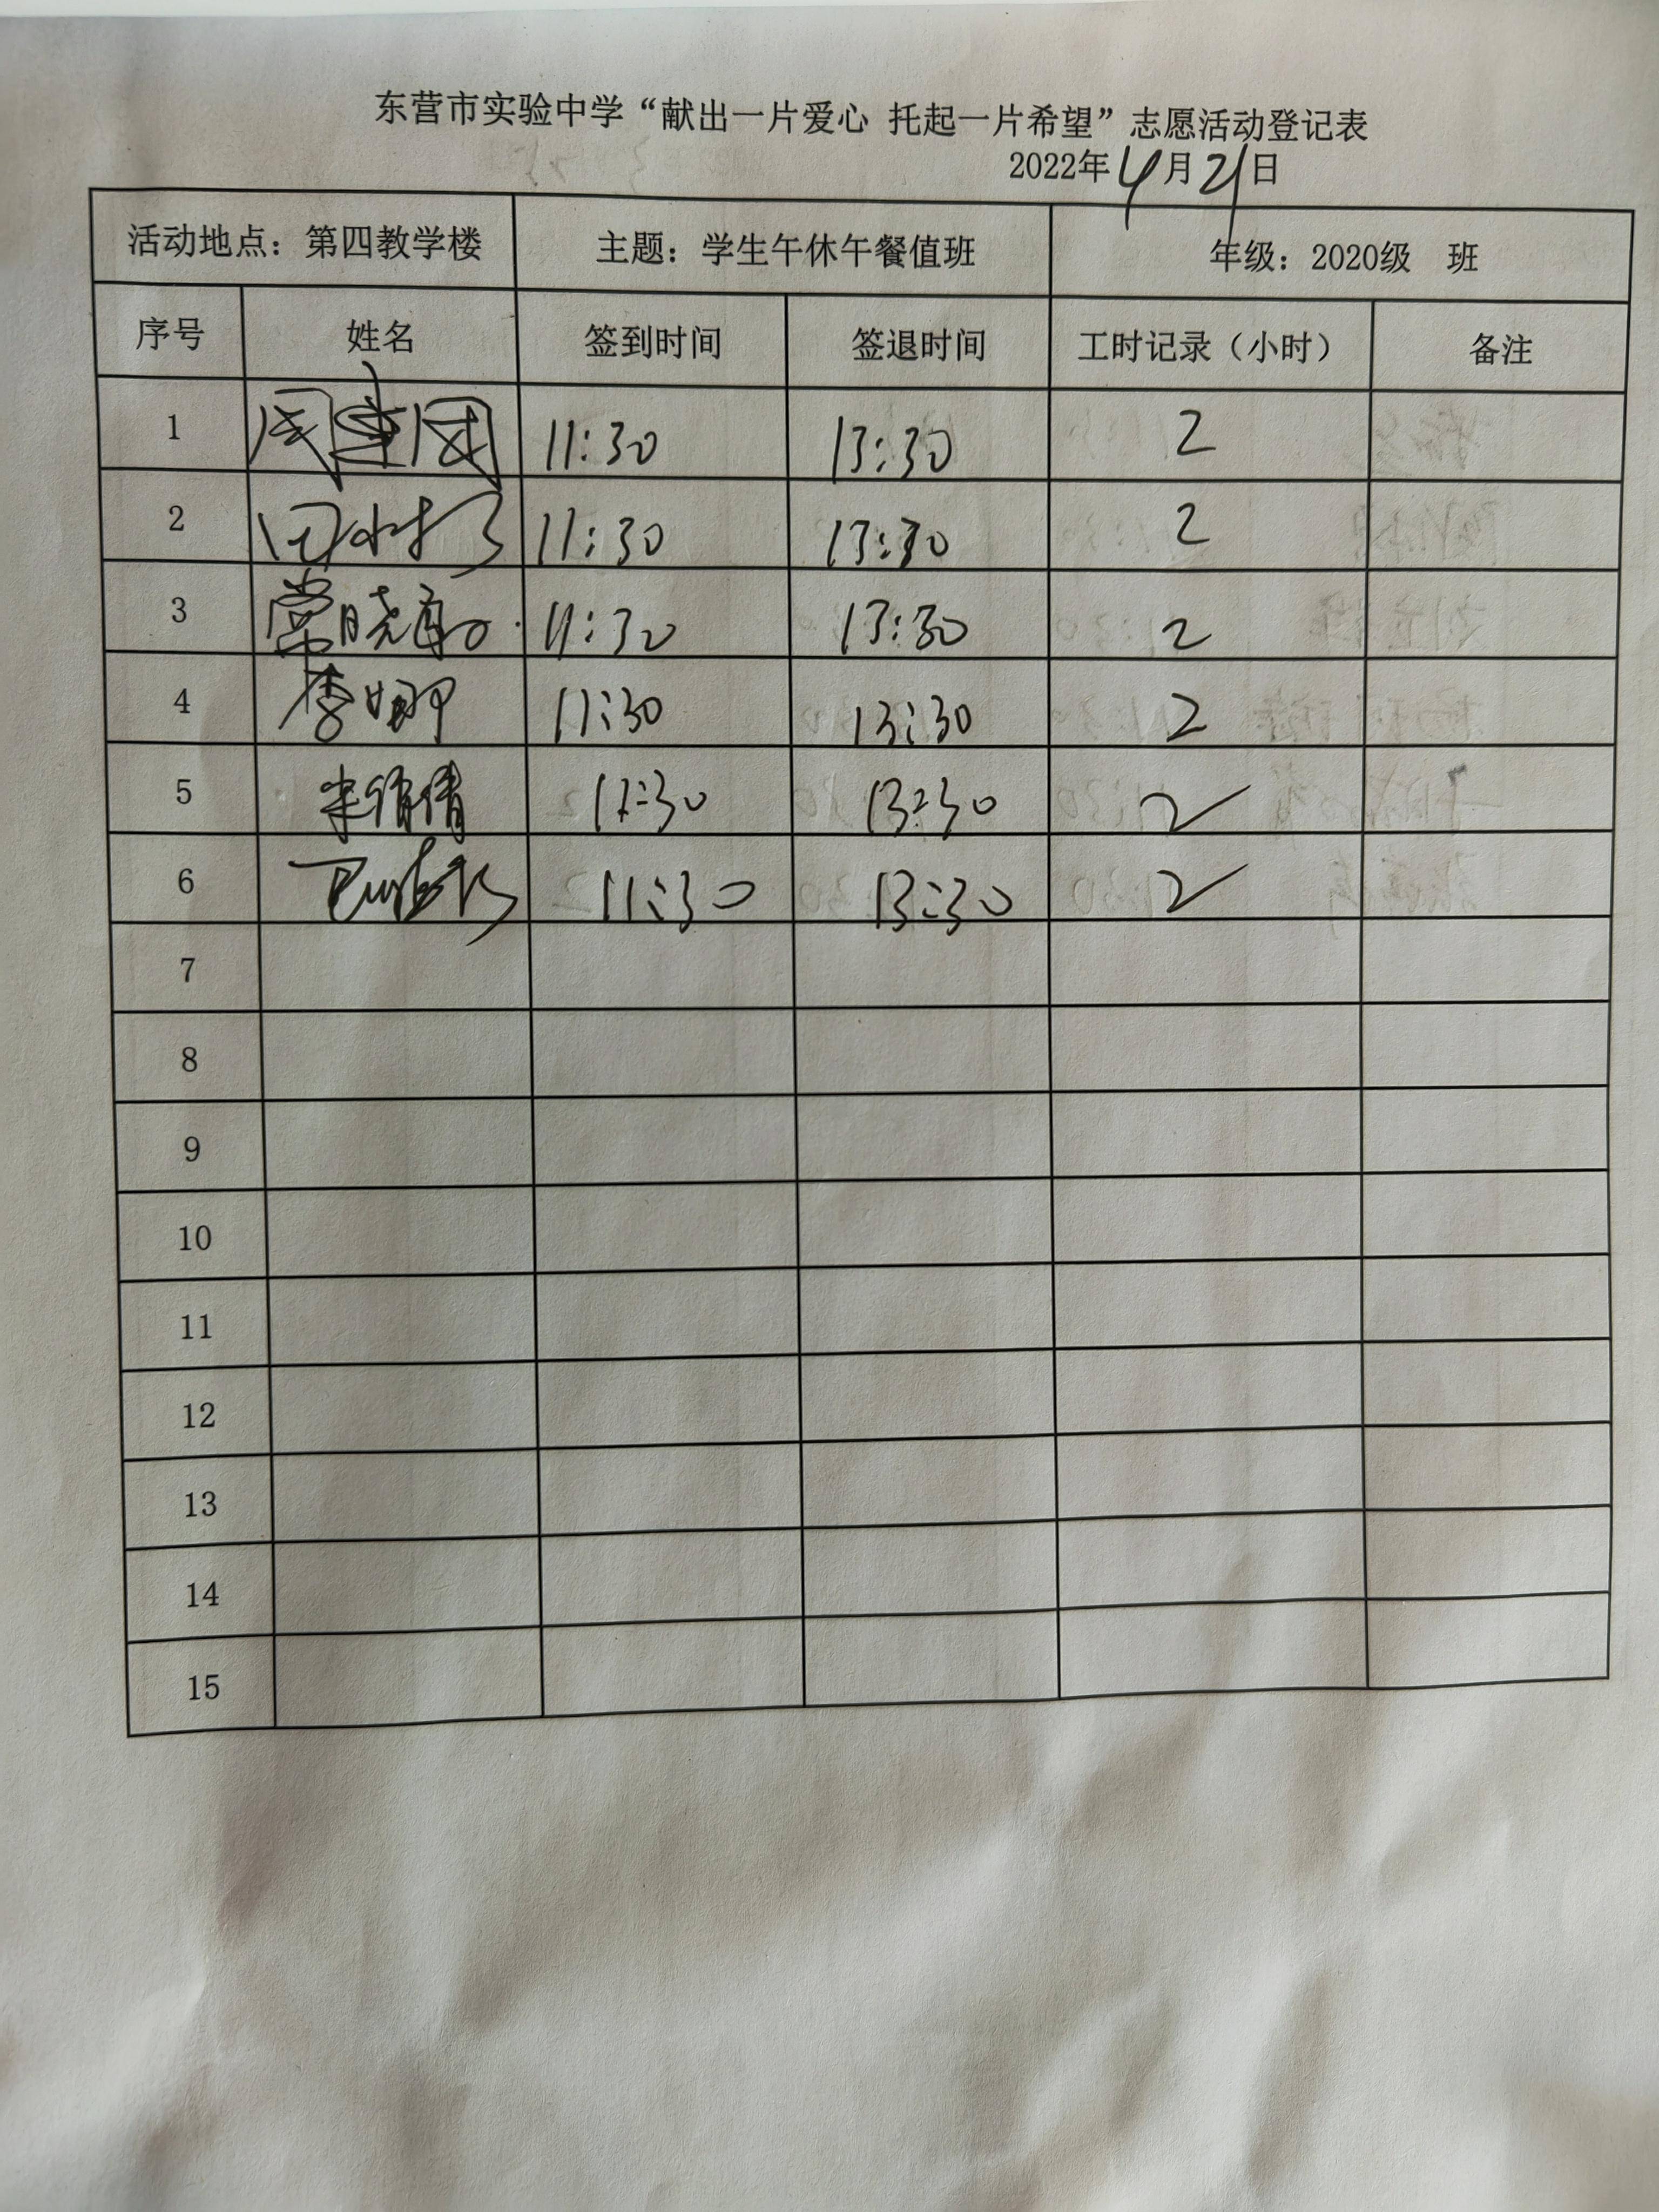 东营市实验中学“献出一片爱心 托起一片希望”志愿活动登记表
2022年4月21日
活动地点：第四教学楼 主题：学生午休午餐值班 年级：2020级 班
序号 姓名 签到时间 签退时间 工时记录（小时） 备注
1 周建国 11:30 13:30 2
2 11:30 13:30 2
3 常晓 11:30 13:30 2
4 李娜 11:30 13:30 2
5 倩 11:30 13:30 2
6 11:30 13:30 2
7
8
9
10
11
12
13
14
15